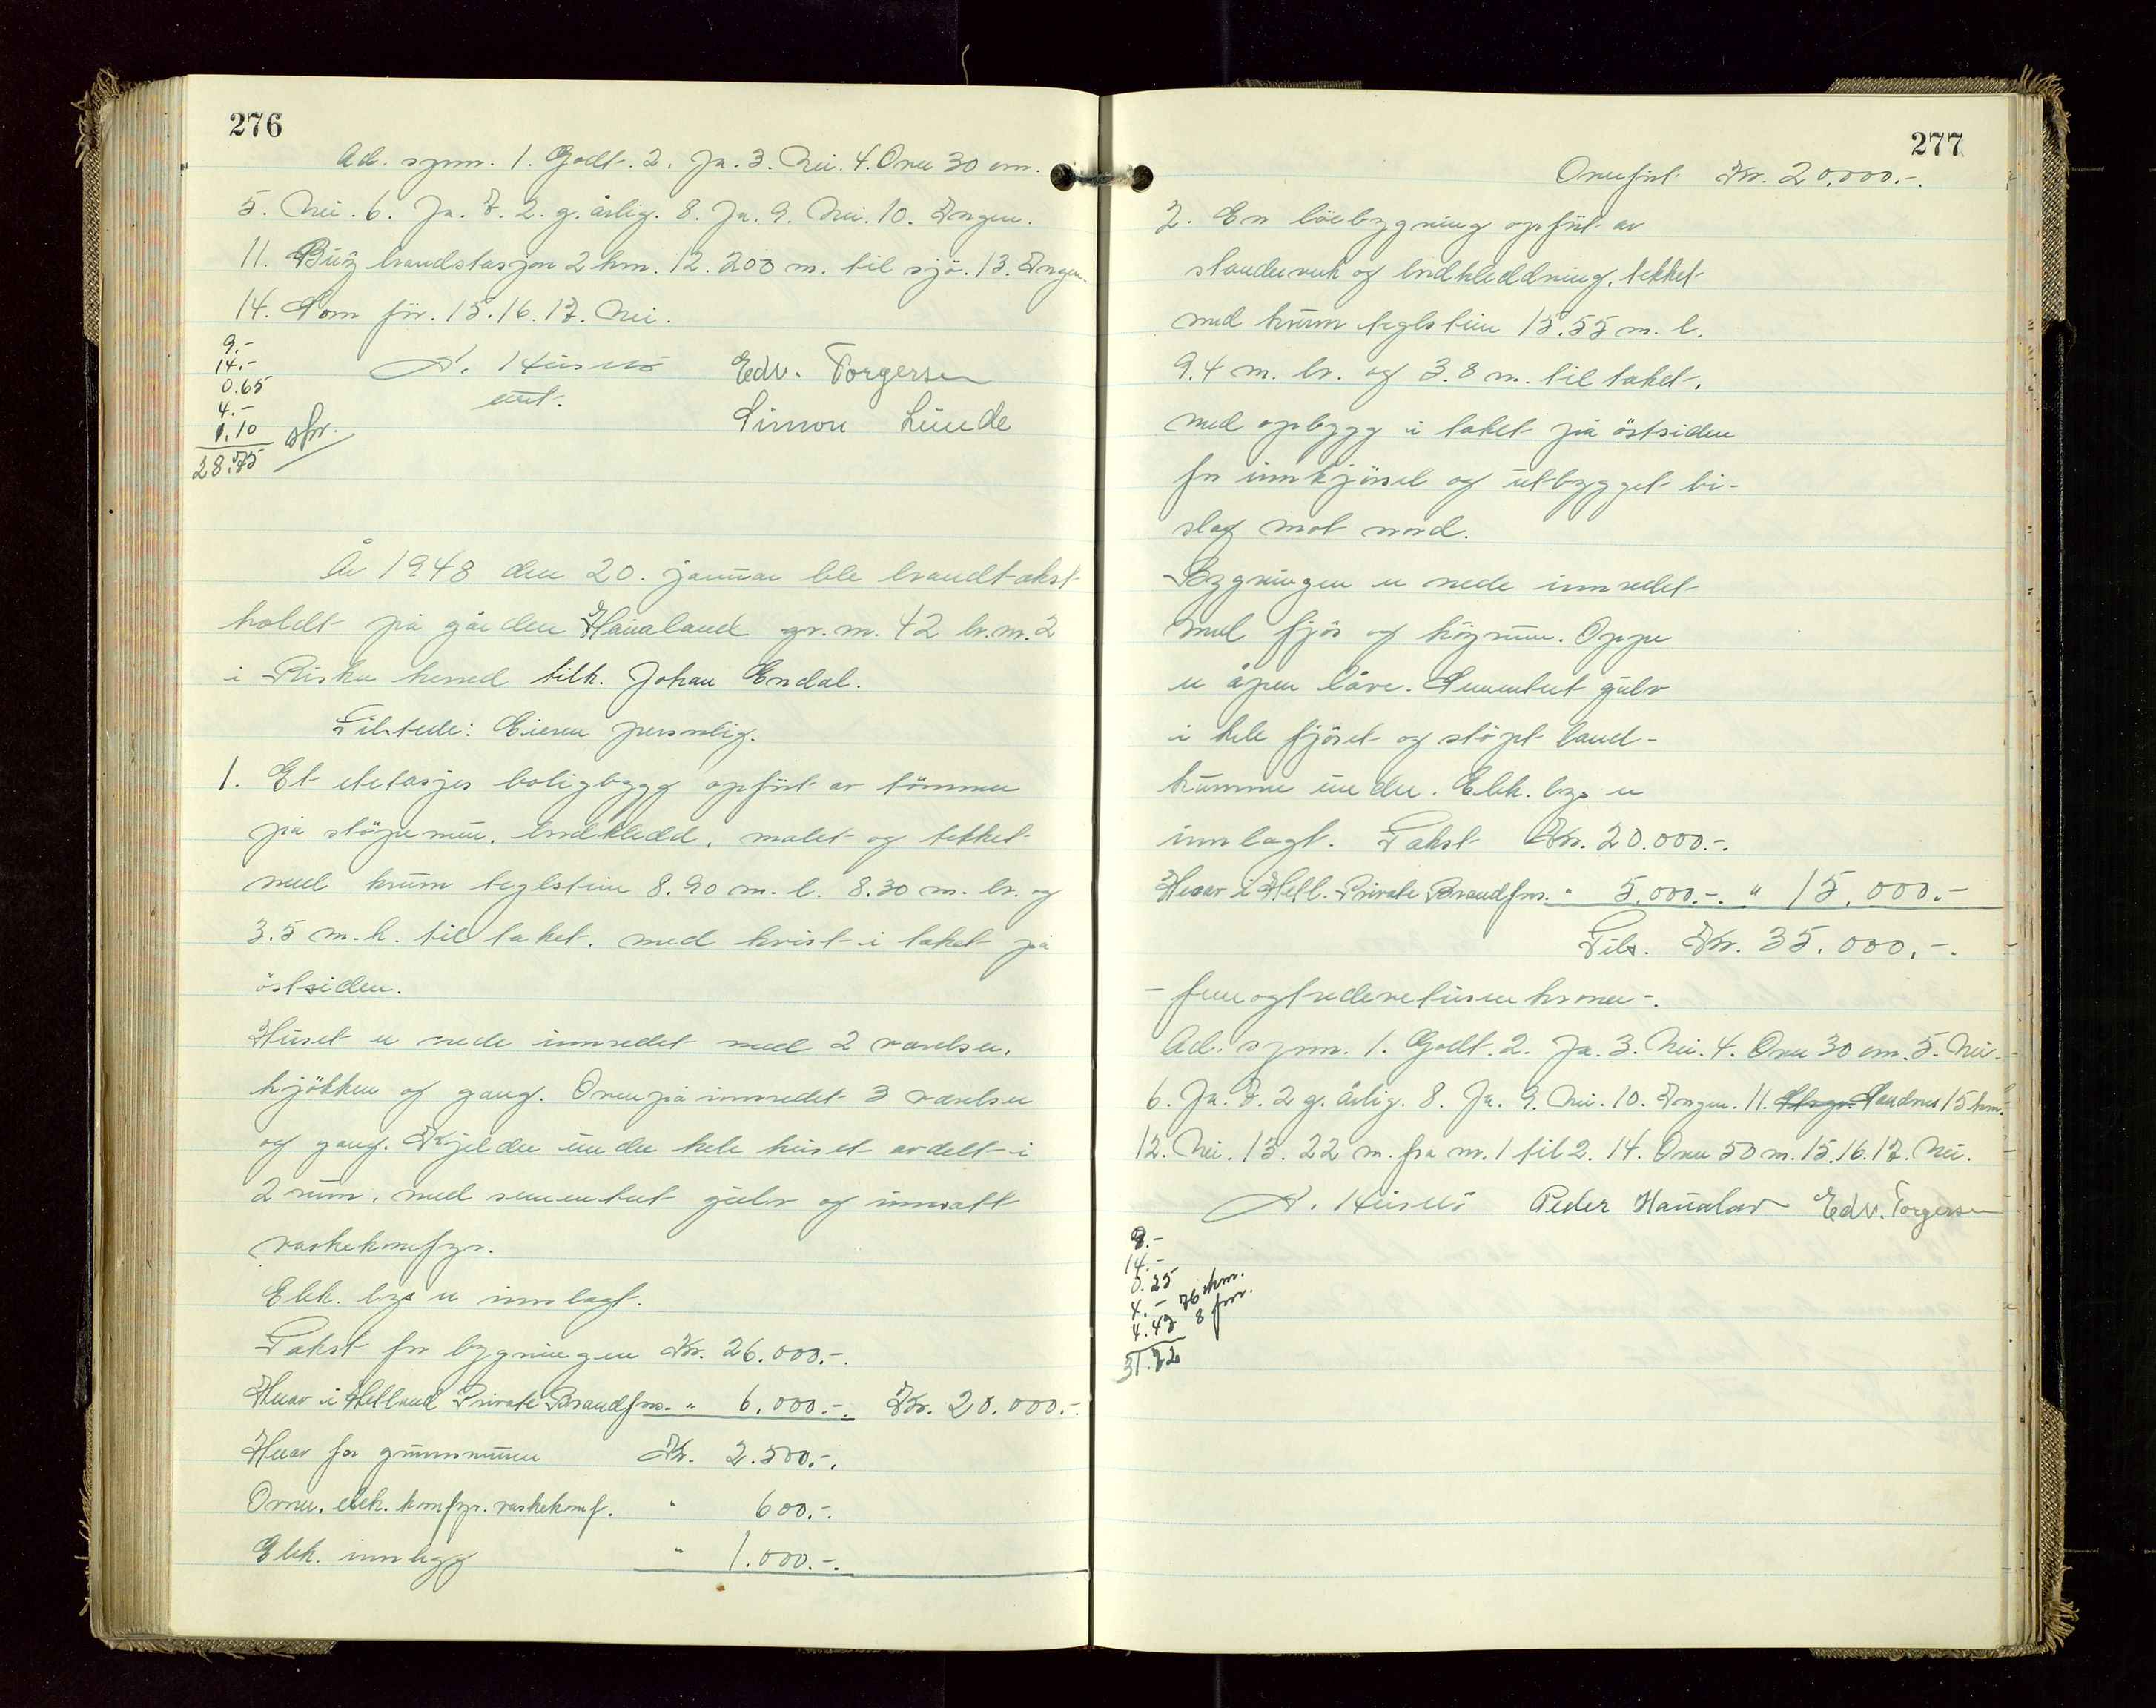 276
Ad. spm. 1. Godt. 2. Ja. 3. Nei. 4. Over 30 cm.
5. Nei. 6. Ja. 7. 2. g. årlig. 8. Ja. 9. Nei. 10. Ingen.
11. brandstasjon 2 km. 12. 200 m. til sjø. 13. Ingen.
14. Som før. 15. 16. 17. Nei.
9.-
14.-
0.65
4.-
1.10
28.75
Edv. Torgersen
Simon Lunde
År 1948 den 20. januar ble brandtakst
holdt på gården Haualand gr. nr. 42 br. nr. 2
i Riska herred tilh. Johan Endal.
Tilstede: Eieren personlig.
1. Et etetasjes boligbygg opført av tømmer
på støpemur, bordkledd, malet og tekket
med krum teglsten 8.90 m. l. 8.30 m. br. og
3.5 m. h. til taket, med kvist i taket på
østsiden.
Huset er nede innredet med 2 værelser,
kjøkken og gang. Ovenpå innredet 3 værelser
og gang. Kjelder under hele huset avdelt i
2 rum, med sementert gulv og innsatt
vaskekomfyr.
Elek. lys er innlagt.
Takst for bygningen Kr. 26.000.-.
Herav i Hetland Private Brandfors. " 6.000.-. Kr. 20.000.-.
Herav for grunnmuren Kr. 2.500.-.
Ovner, elek. komfyr. vaskekomf. " 600.-.
Elek. innlegg " 1.000.-.
277
Overført Kr. 20.000.-.
2. En løebygning opført av
stenderverk og bordkleddning, tekket
med krum teglsten 15.55 m. l.
9.4 m. br. og 3.8 m. til taket,
med opbygg i taket på østsiden
for innkjørsel og utbygget bi-
slag mot nord.
Bygningen er nede innredet
med fjøs og høyrum. Oppe
er åpen låve. Sementert gulv
i hele fjøset og støpt land-
kumme under. Elek. lys er
innlagt. Takst Kr. 20.000.-.
Herav i Hetl. Private Brandfors. " 5.000.-. " 15.000.-
Tils. Kr. 35.000.-.
- femogtredevetusen kroner -.
Ad. spm. 1. Godt. 2. Ja. 3. Nei. 4. Over 30 cm. 5. Nei.
6. Ja. 7. 2 g. årlig. 8. Ja. 9. Nei. 10. Ingen. 11. Sandnes 15 km.
12. Nei. 13. 22 m. fra nr. 1 til 2. 14. Over 50 m. 15. 16. 17. Nei.
Peder Haualand Edv. Torgersen
9.-
14.-
0.25
4.- 76 km.
4.47 8 forr.
31.72